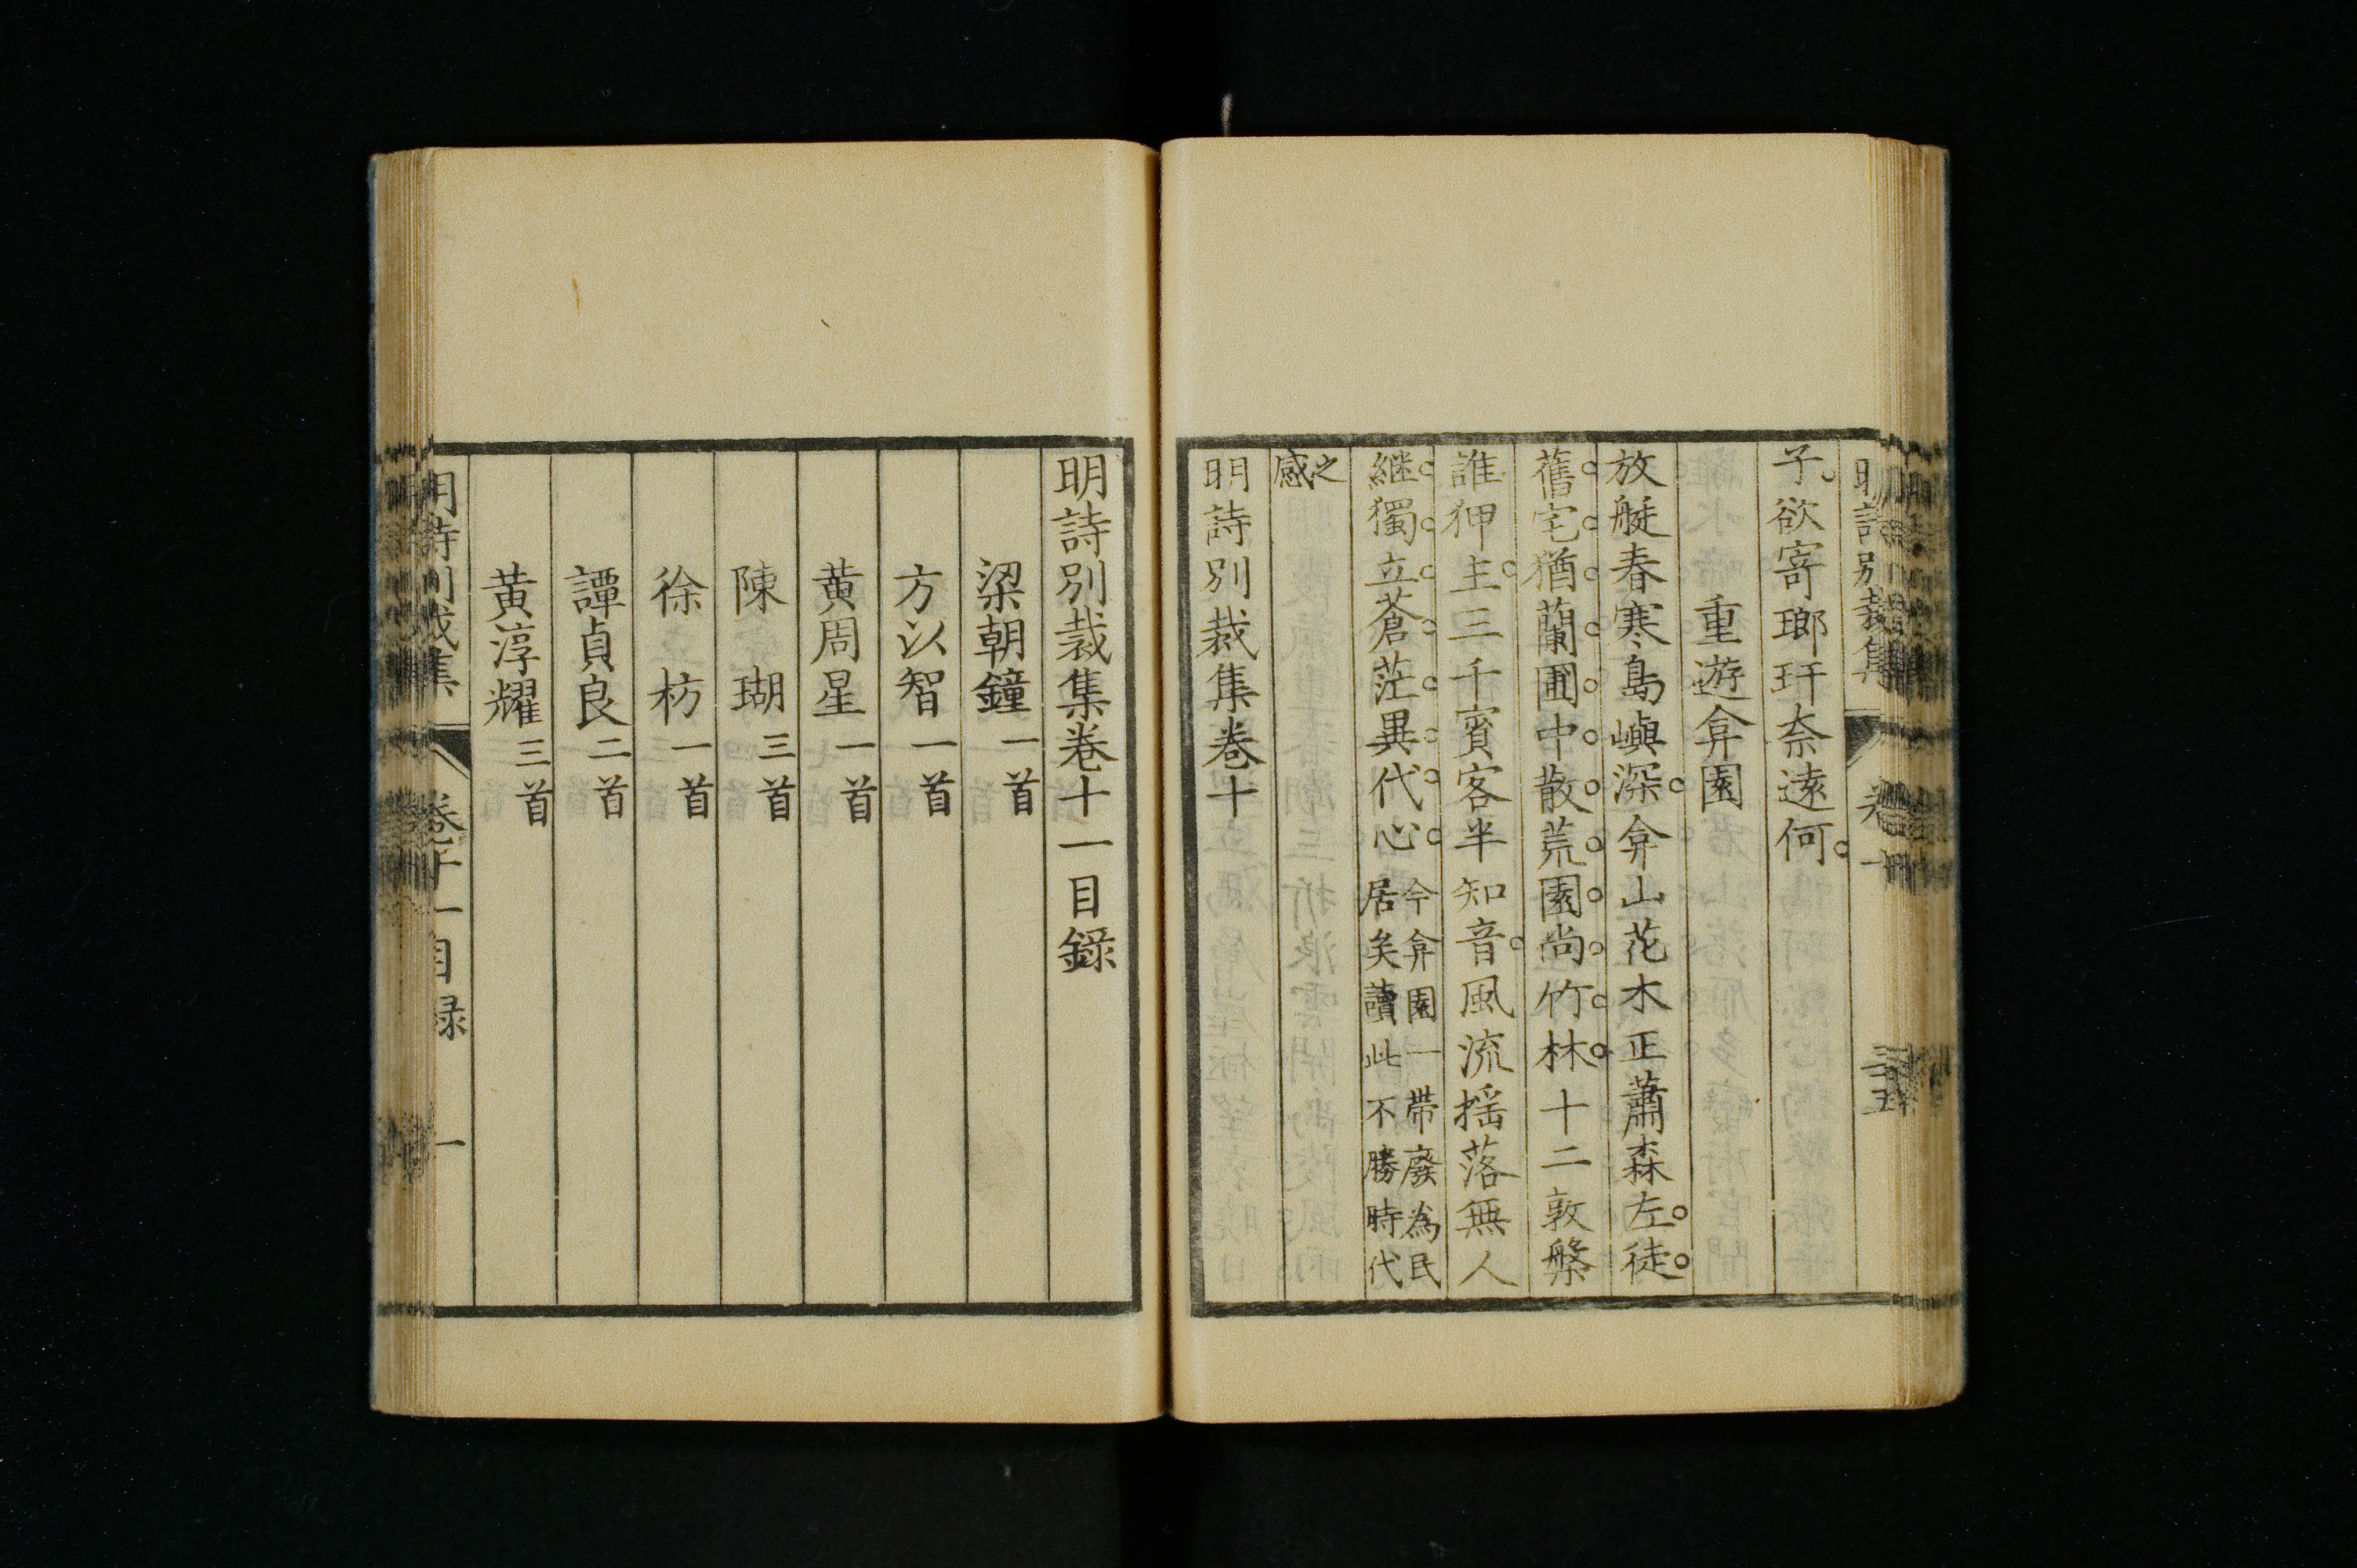 明詩別裁集 卷十
子欲寄瑯玕奈遠何
重遊弇園
放艇春寒島嶼深弇山花木正蕭森左徒
舊宅猶蘭圃中散荒園尚竹林十二敦槃
誰狎主三千賓客半知音風流揺落無人
継獨立蒼茫異代心今弇園一帶廢為民居矣讀此不勝時代
之感
明詩別裁集卷十
明詩別裁集卷十一目錄
梁朝鐘一首
方以智一首
黄周星一首
陳瑚三首
徐枋一首
譚貞良二首
黄淳耀三首
明詩別裁集 卷十一目録 一